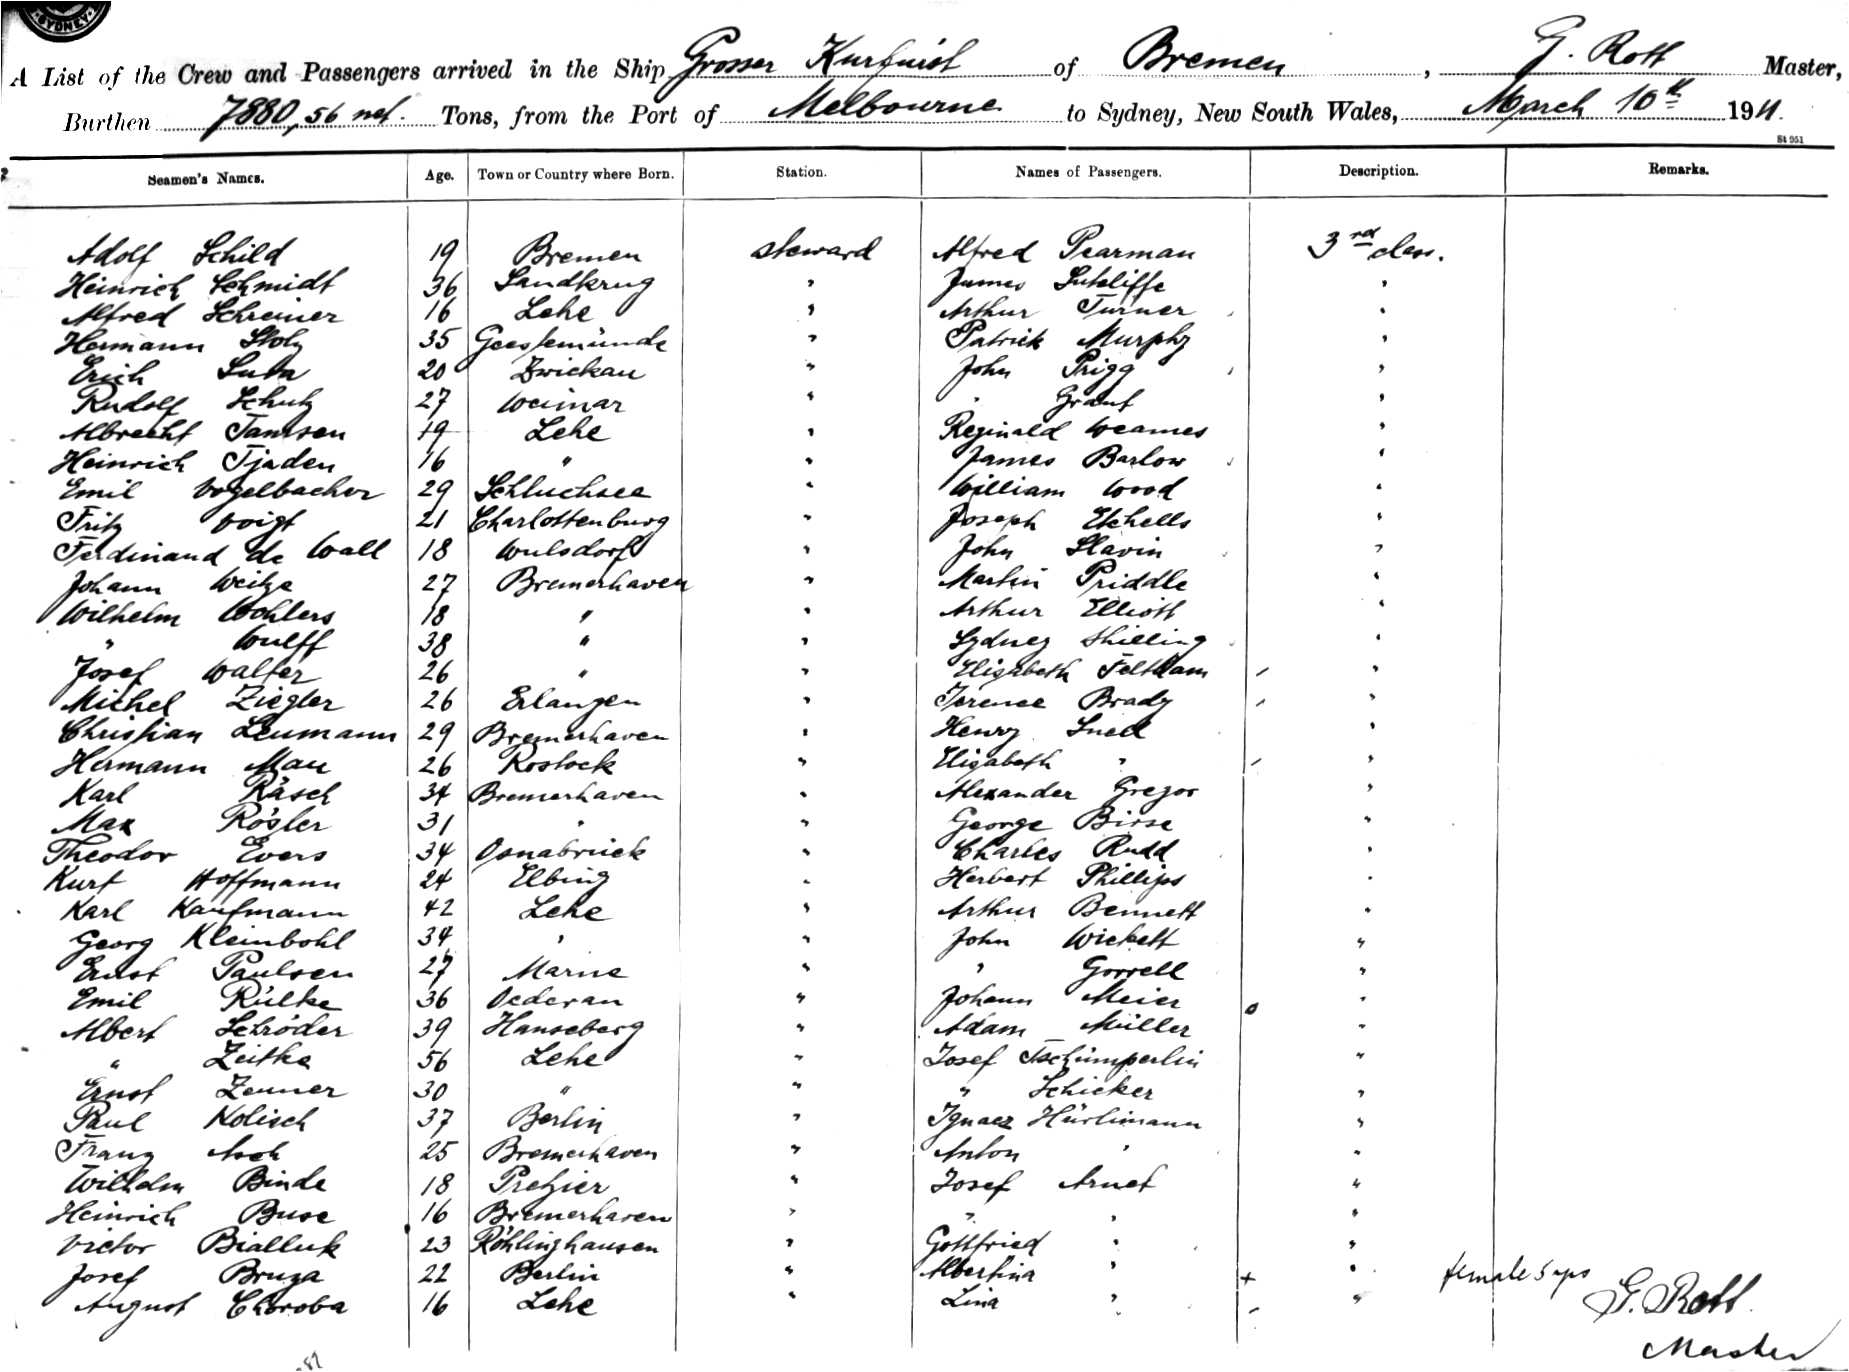 SYDNEY
A List of the Crew and Passengers arrived in the Ship Grosser Kurfürst of Bremen, G. Rott Master,
Burthen 7880,56 net. Tons, from the Port of Melbourne to Sydney, New South Wales, March 10th 1911.
St 951
Seamen's Names. Age. Town or Country where Born. Station. Names of Passengers. Description. Remarks.
Adolf Schild 19 Bremen steward Alfred Pearman 3rd class.
Heinrich Schmidt 36 Sandkrug " James Sutcliffe "
Alfred Schreiner 16 Lehe " Arthur Turner "
Hermann Stolz 35 Geestemünde " Patrick Murphy "
Erich 20 Zwickau " John Prigg "
Rudolf Schulz 27 Weimar " " Grant "
Albrecht Tamsen 19 Lehe " Reginald Weames "
Heinrich Tjaden 16 " " James Barlow "
Emil Vogelbacher 29 Schluchsee " William Wood "
Fritz Voigt 21 Charlottenburg " Joseph Etchells "
Ferdinand de Wall 18 Wulsdorf " John Slavin "
Johann Weitze 27 Bremerhaven " Martin Priddle "
Wilhelm Wohlers 18 " " Arthur Elliott "
" Wulff 38 " " Sydney Shilling "
Josef Walter 26 " " Elizabeth Feltham "
Michel Ziegler 26 Erlangen " Terence Brady "
Christian Leumann 29 Bremerhaven " Henry Snell "
Hermann Mau 26 Rostock " Elizabeth " "
Karl Räsch 34 Bremerhaven " Alexander Gregor "
Max Rösler 31 " " George Birse "
Theodor Evers 34 Osnabrück " Charles Rudd "
Kurt Hoffmann 24 Elbing " Herbert Phillips "
Karl Kaufmann 42 Lehe " Arthur Bennett "
Georg Kleinbohl 34 " " John Wickett "
Ernst Paulsen 27 Marne " " Gorrell "
Emil Rülke 36 Oederan " Johann Meier "
Albert Schröder 39 Hanseberg " Adam Müller "
" Zeitke 56 Lehe " Josef Tschümperlin "
Ernst Zenner 30 " " " Schicker "
Paul Kolisch 37 Berlin " Ignaez Hürlimann "
Franz Asch 25 Bremerhaven " Anton " "
Wilhelm Binde 18 Pretzier " Josef Arnet "
Heinrich Buse 16 Bremerhaven " " " "
Victor Bialluk 23 Röhlinghausen " Gottfried " "
Josef Bruza 22 Berlin " Albertina " + " female 5 yrs
August Choroba 16 Lehe " Lina " "
G. Rott.
Master
87